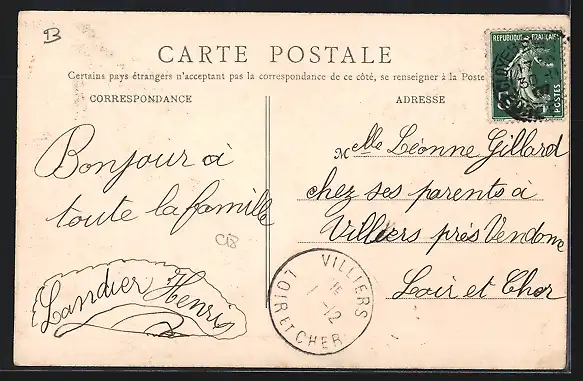 B
CARTE POSTALE
Certains pays étrangers n'acceptant pas la correspondance de ce côté, se renseigner à la Poste
CORRESPONDANCE
ADRESSE
REPUBLIQUE FRANÇAISE
POSTES
Bonjour à
toute la famille
Landier Henri
Melle Léonne Gillard
chez ses parents à
Villiers près Vendome
Loir et Cher
VILLIERS
12
LOIR ET CHER